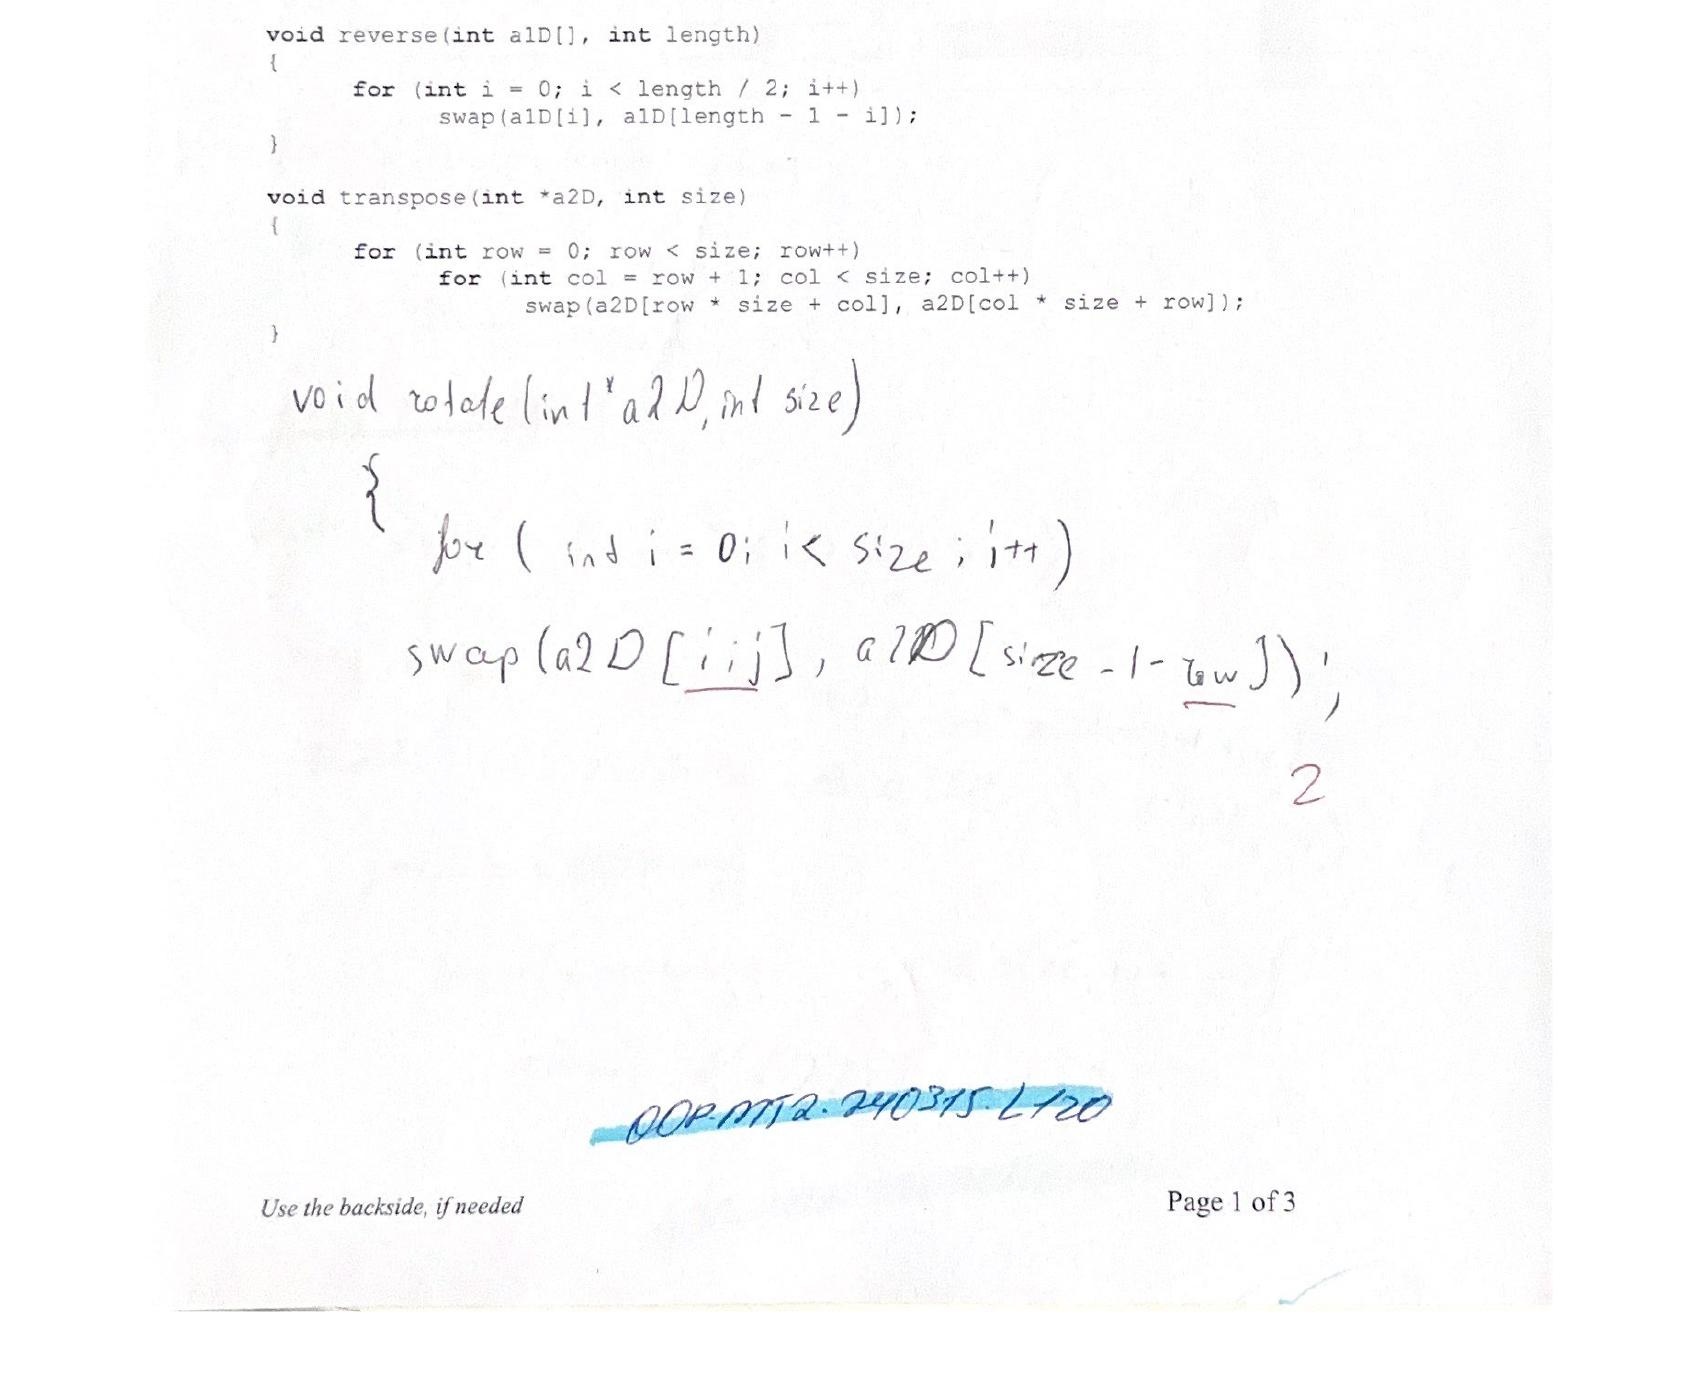 void reverse(int a1D[], int length)
{
for (int i = 0; i < length / 2; i++)
swap(a1D[i], a1D[length - 1 - i]);
}
void transpose(int *a2D, int size)
{
for (int row = 0; row < size; row++)
for (int col = row + 1; col < size; col++)
swap(a2D[row * size + col], a2D[col * size + row]);
}
void rotate(int*a2D, int size)
{
for ( int i = 0; i < size ; i++)
swap(a2D[i;j], a2D[size -1- row]);
2
OOP.MT2.240315.L120
Use the backside, if needed
Page 1 of 3